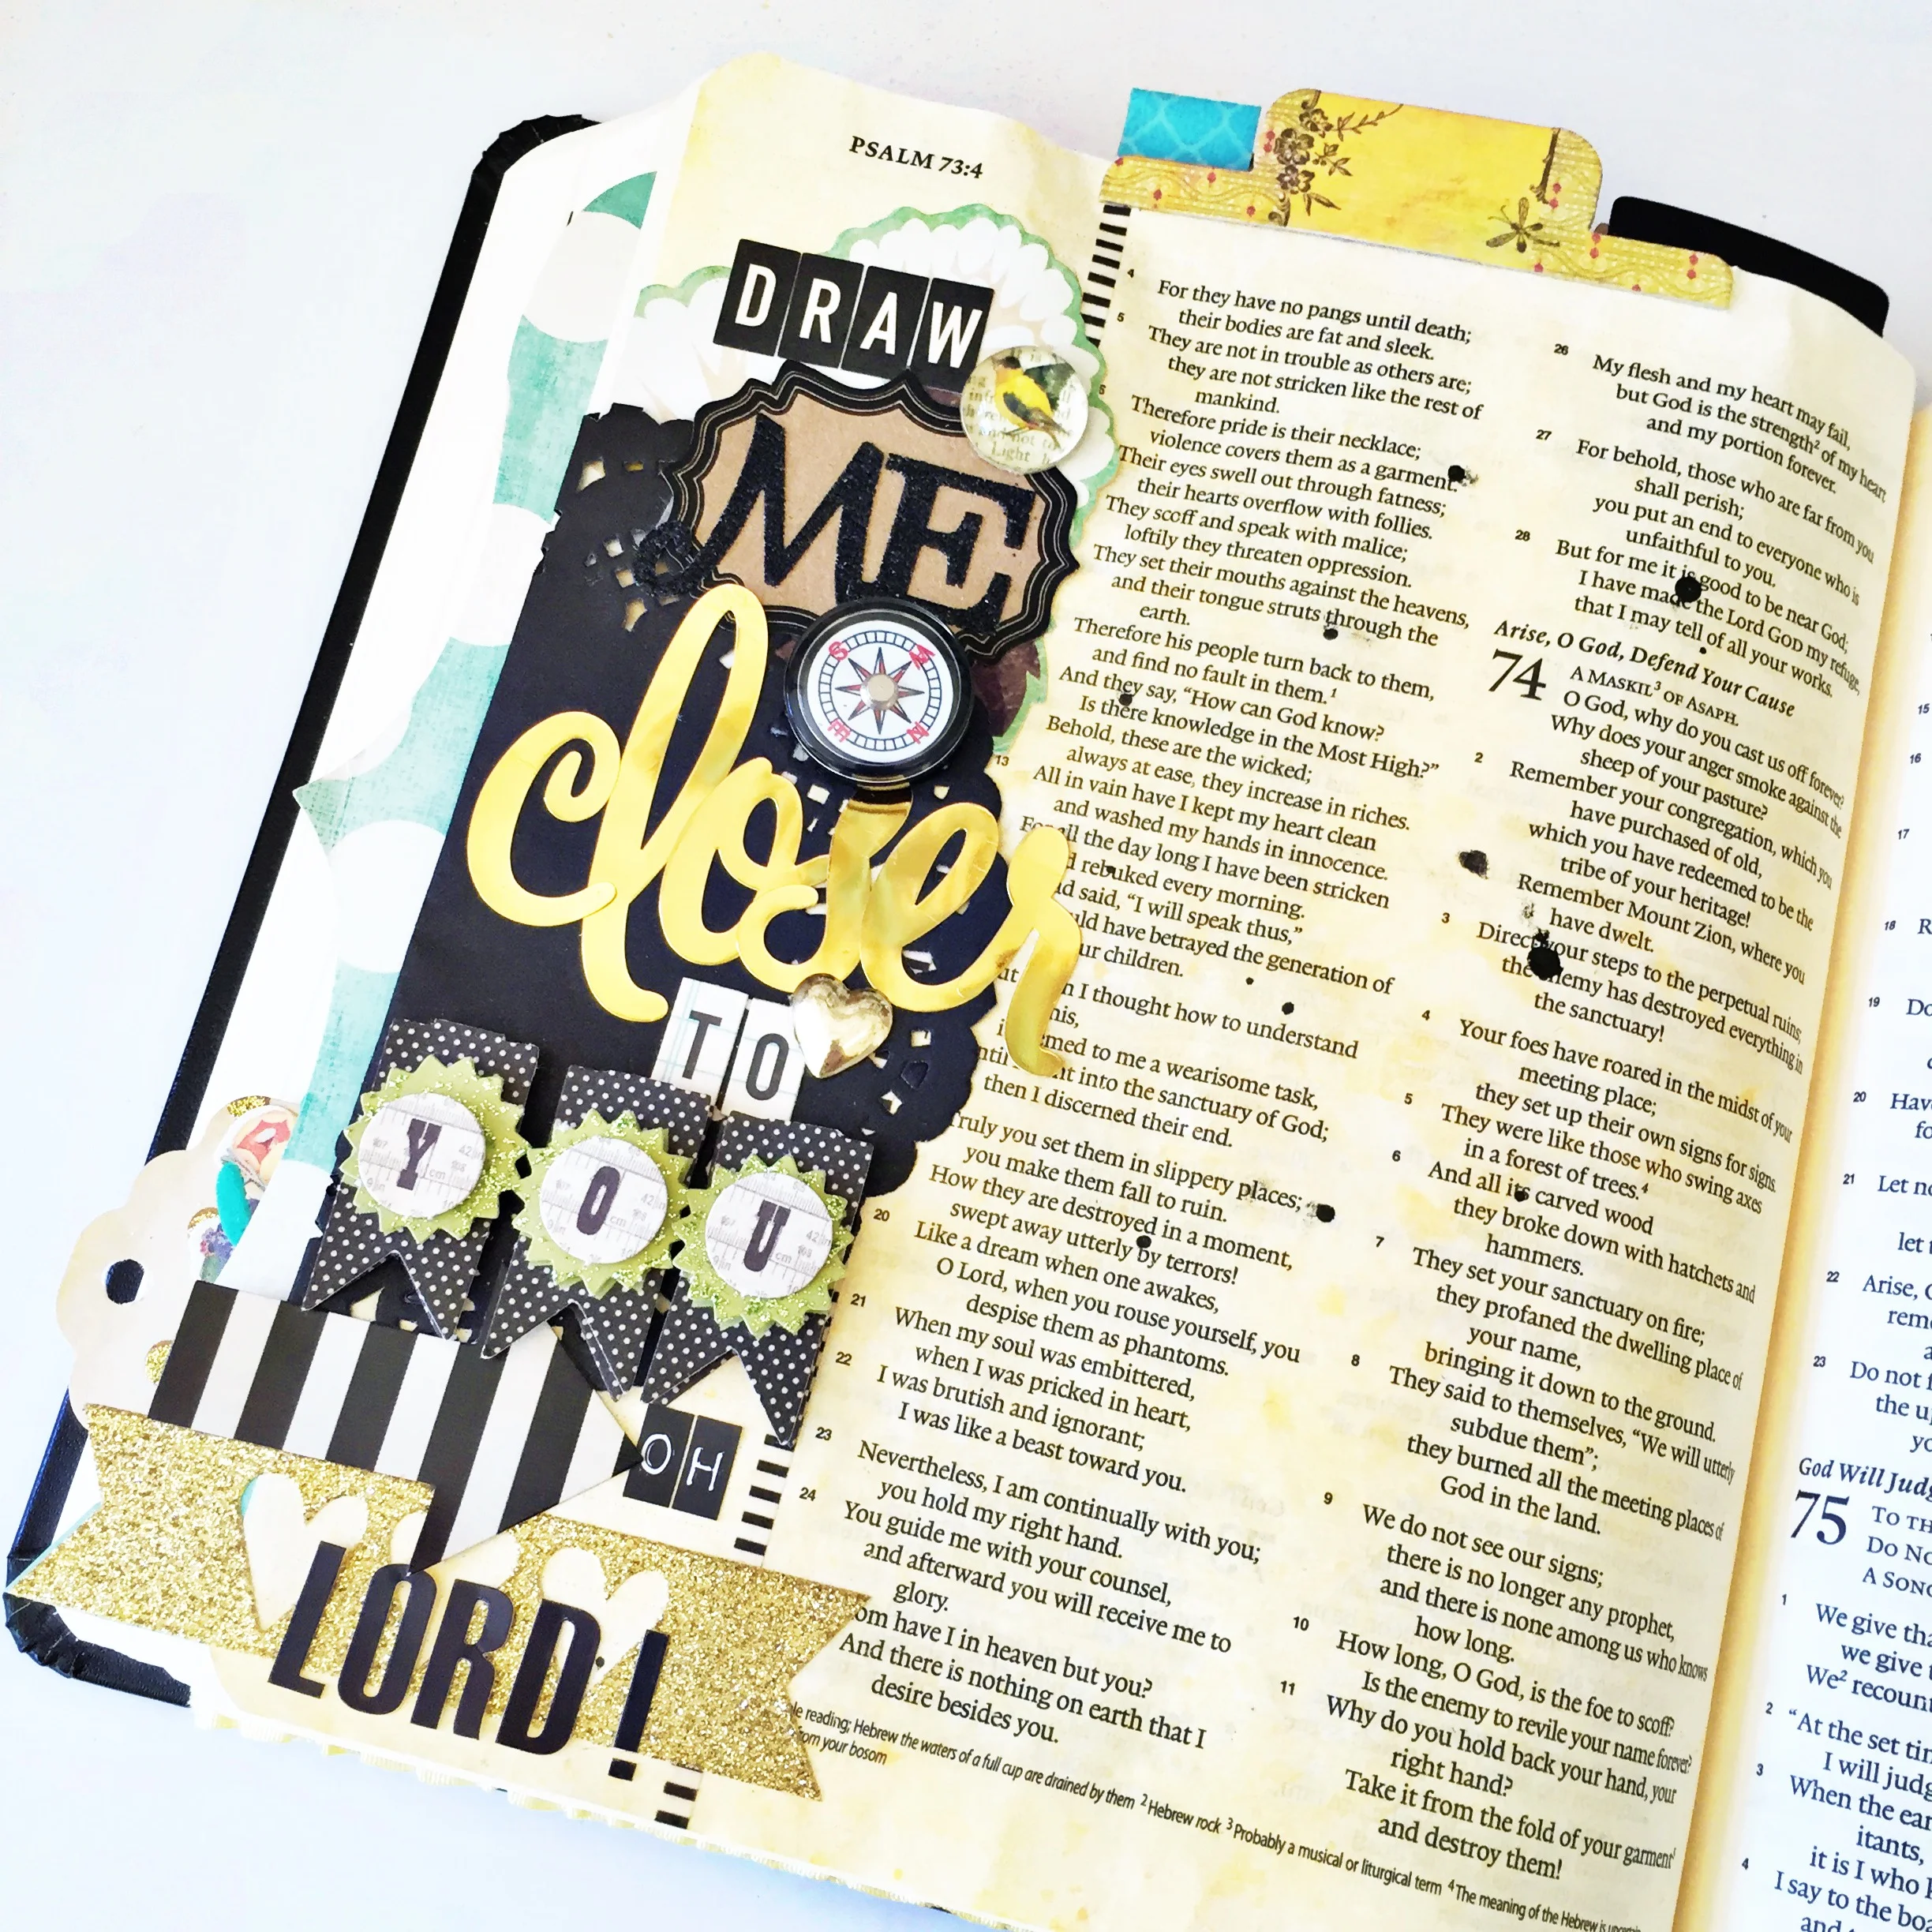 PSALM 73:4
DRAW
ME
closer
TO
YOU
OH
LORD!
4 For they have no pangs until death;
their bodies are fat and sleek.
5 They are not in trouble as others are;
they are not stricken like the rest of
mankind.
Therefore pride is their necklace;
violence covers them as a garment.
Their eyes swell out through fatness;
their hearts overflow with follies.
They scoff and speak with malice;
loftily they threaten oppression.
They set their mouths against the heavens,
and their tongue struts through the
earth.
Therefore his people turn back to them,
and find no fault in them.¹
And they say, “How can God know?
Is there knowledge in the Most High?”
Behold, these are the wicked;
always at ease, they increase in riches.
13 All in vain have I kept my heart clean
and washed my hands in innocence.
For all the day long I have been stricken
rebuked every morning.
said, “I will speak thus,”
have betrayed the generation of
children.
I thought how to understand
a wearisome task,
into the sanctuary of God;
then I discerned their end.
Truly you set them in slippery places;
you make them fall to ruin.
How they are destroyed in a moment,
swept away utterly by terrors!
20 Like a dream when one awakes,
O Lord, when you rouse yourself, you
despise them as phantoms.
21 When my soul was embittered,
when I was pricked in heart,
22 I was brutish and ignorant;
I was like a beast toward you.
23 Nevertheless, I am continually with you;
you hold my right hand.
24 You guide me with your counsel,
and afterward you will receive me to
glory.
have I in heaven but you?
And there is nothing on earth that I
desire besides you.
26 My flesh and my heart may fail,
but God is the strength² of my heart
and my portion forever.
27 For behold, those who are far from you
shall perish;
you put an end to everyone who is
unfaithful to you.
28 But for me it is good to be near God;
I have made the Lord GOD my refuge,
that I may tell of all your works.
Arise, O God, Defend Your Cause
74 A MASKIL³ OF ASAPH.
O God, why do you cast us off forever?
Why does your anger smoke against the
sheep of your pasture?
2 Remember your congregation, which you
have purchased of old,
which you have redeemed to be the
tribe of your heritage!
Remember Mount Zion, where you
have dwelt.
3 Direct your steps to the perpetual ruins;
the enemy has destroyed everything in
the sanctuary!
4 Your foes have roared in the midst of your
meeting place;
they set up their own signs for signs.
5 They were like those who swing axes
in a forest of trees.⁴
6 And all its carved wood
they broke down with hatchets and
hammers.
7 They set your sanctuary on fire;
they profaned the dwelling place of
your name,
bringing it down to the ground.
8 They said to themselves, “We will utterly
subdue them”;
they burned all the meeting places of
God in the land.
9 We do not see our signs;
there is no longer any prophet,
and there is none among us who knows
how long.
10 How long, O God, is the foe to scoff?
Is the enemy to revile your name forever?
11 Why do you hold back your hand, your
right hand?
Take it from the fold of your garment
and destroy them!
reading; Hebrew the waters of a full cup are drained by them ² Hebrew rock ³ Probably a musical or liturgical term ⁴ The meaning of the Hebrew is uncertain
from your bosom
15
16
17
18
19 Do
20
21 Let
22 Arise,
23 Do not
the
God Will
75 TO
DO
A
1 We give
we give
We² recount
2 “At the set
I will
3 When the
it is I who
4 I say to the
and